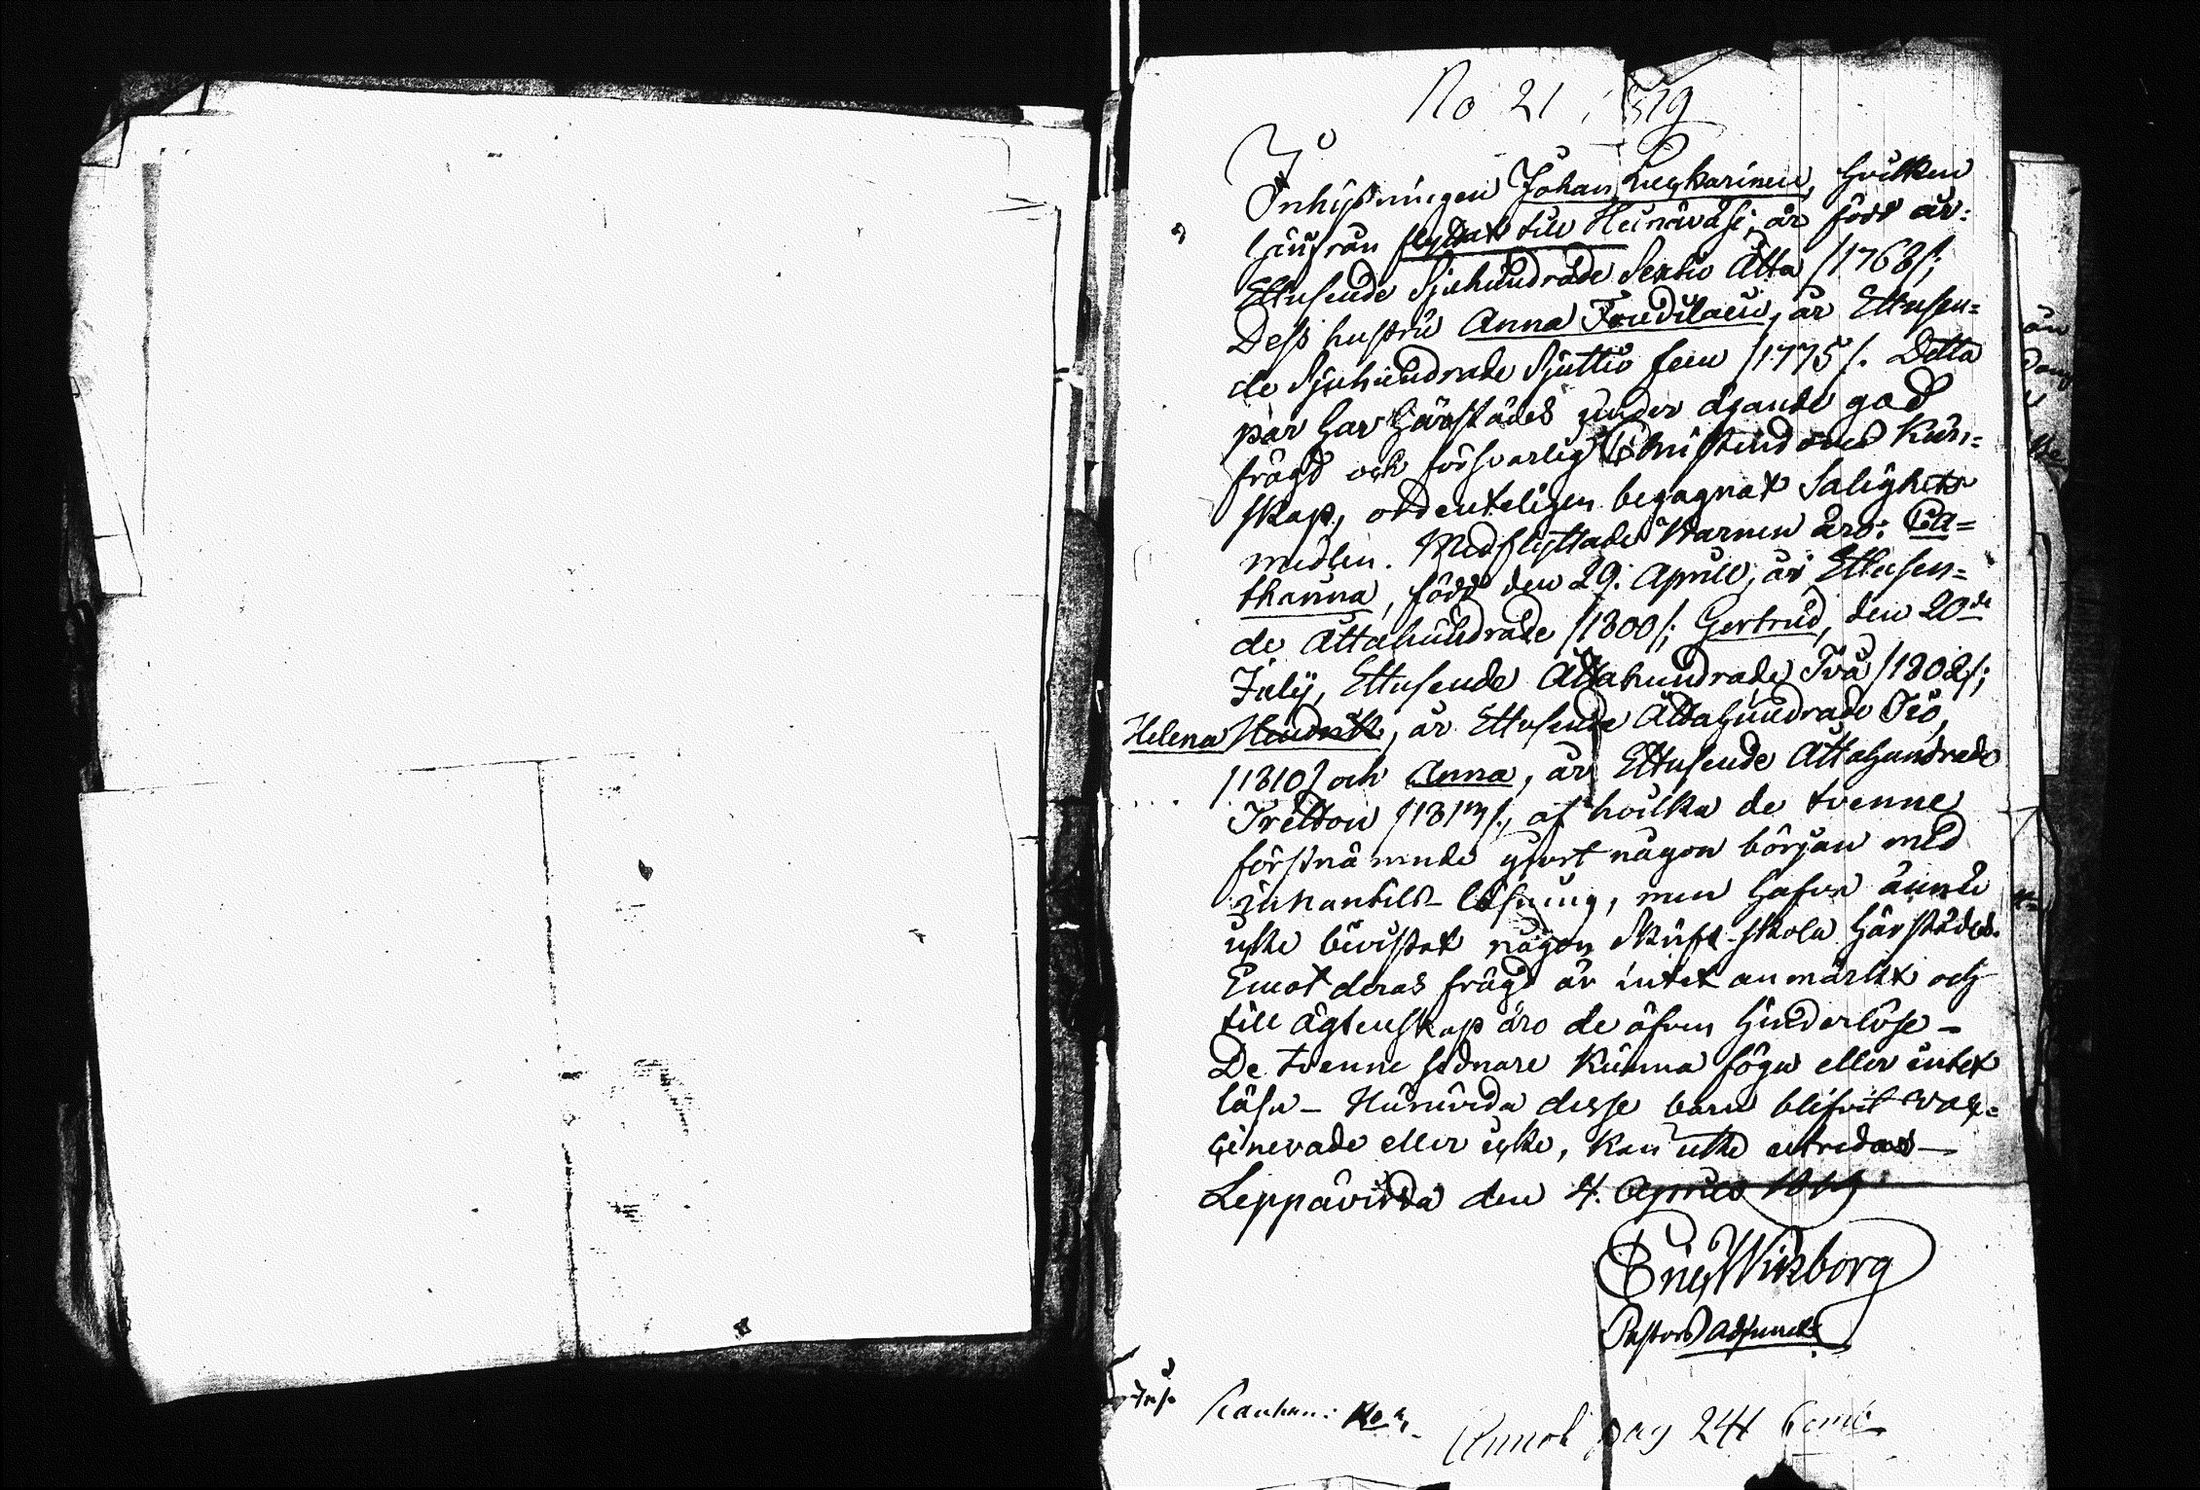 No 21, 1819
Inhysningen Johan Kuckarinen, hvilken
härifrån flyttat till Heinäväsi, är född år:
Ettusende Sjuhundrade Sextio Åtta /1768/;
Dess hustru Anna Tondilain, år Ettusen=
de Sjuhundrade Sjuttio fem /1775/. Detta
par har härstädes under ägande god
frägd och försvarlig Christendoms Kun=
skap, ordenteligen begagnat Salighets
medlen. Medflyttade barnen äro: Ca=
tharina, född den 29. Aprill, år Ettusen=
de Åttahundrade /1800/; Gertrud, den 20de
Julii, Ettusende Åttahundrade Två /1802/;
Helena Hindrik, år Ettusende Åttahundrade Tio,
/1810/ och Anna, år Ettusende Åttahundrade
Tretton /1813/, af hvilka de tvenne
förstnämnde gjort någon början med
innantils läsning, men hafva ännu
icke bevistat någon Skrift-skola härstädes.
Emot deras frägd är intet anmärkt och
till ägtenskap äro de äfven hinderlöse –
De tvenne sednare kunna föga eller intet
läsa – Huruvida desse barn blifvit vax=
cinerade eller icke, kan icke utredas –
Leppävirda den 4. Aprill 1819
Eric Wikborg
Pastors Adjunct.
pag 241